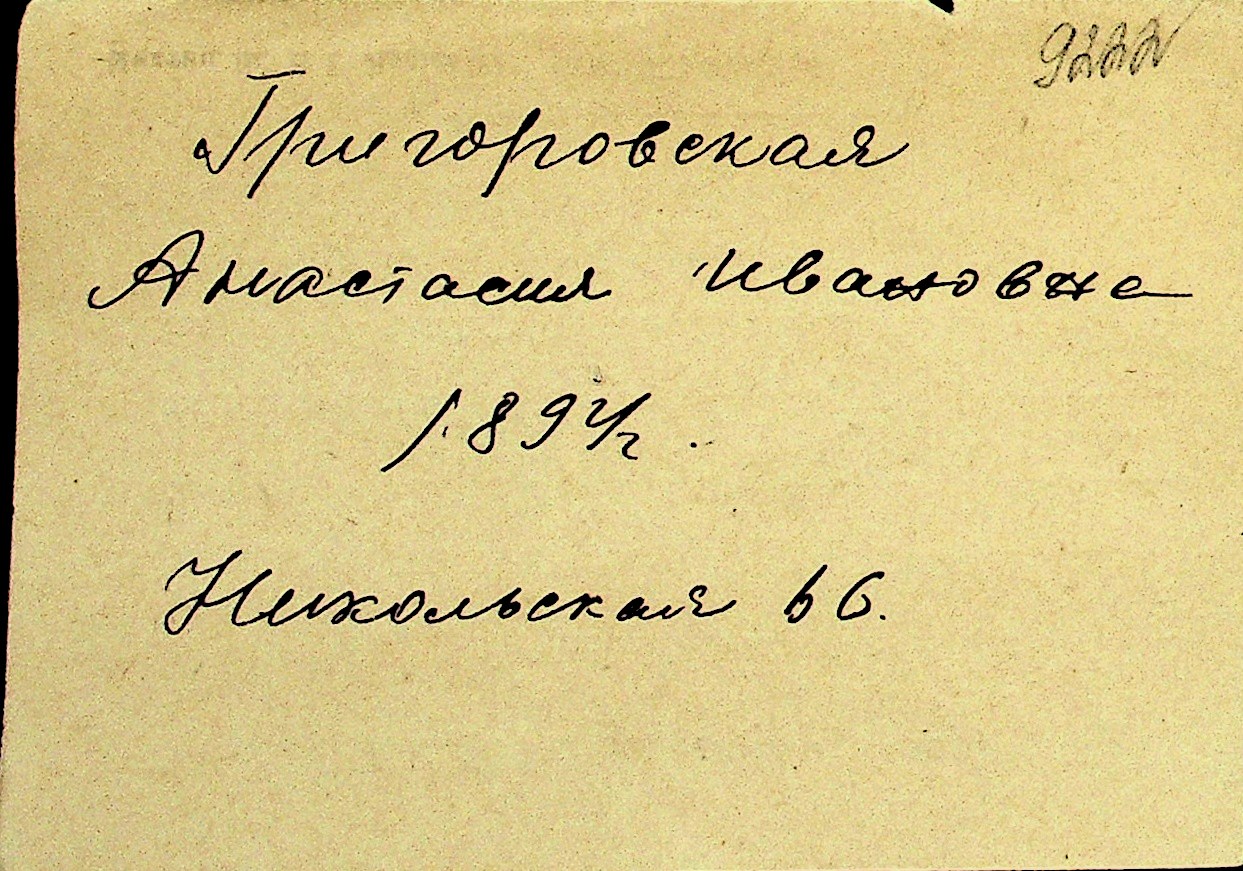 9222
Григоровская
Анастасия Ивановна
1894 г.
Никольская 66.